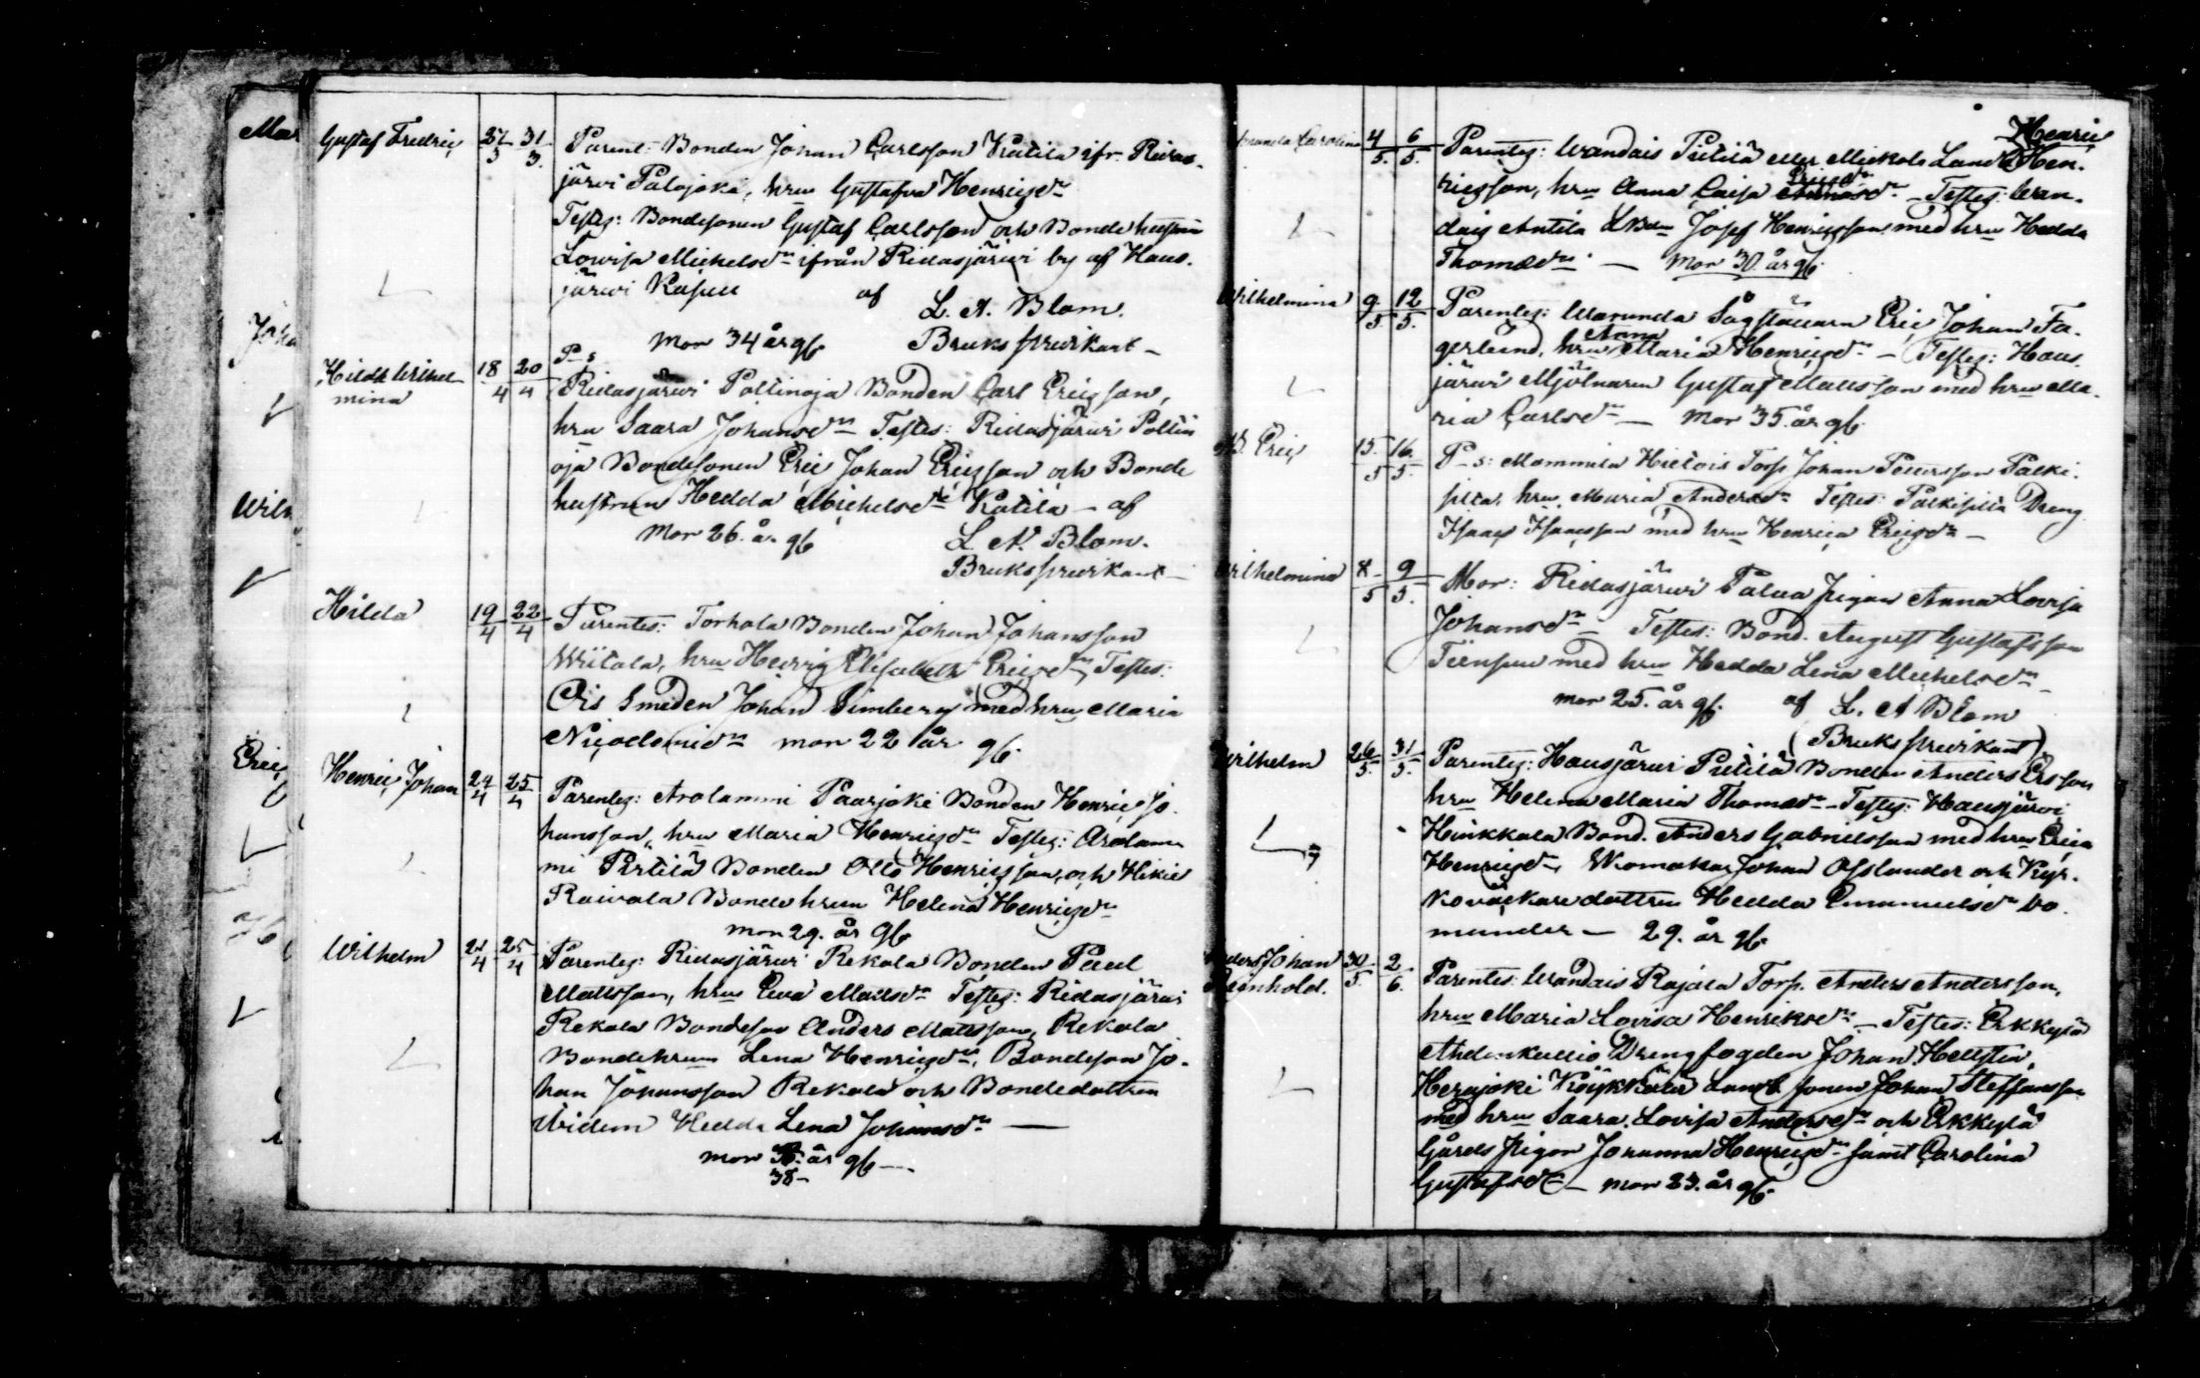 Gustaf Fredric 27/3 31/3 Parent: Bonden Johan Carlsson Kråtila ifr. Ridas-
järvi Palojoki, hru Gustafva Henricsdr
Testes: Bondesonen Gustaf Carlsson och Bondehustrun
Lovisa Michelsdr ifrån Ridasjärvi by af Haus-
järvi af
L. A. Blom.
mor 34 år gb. Brukspredikant
Hilda Wilhel-
mina 18/4 20/4 P-s
Ridasjärvi Poltinoja Bonden Carl Ericsson,
hru Saara Johansdr Testes: Ridasjärvi Poltin
oja Bondesonen Eric Johan Ericsson och Bonde
hustrun Hedda Michelsdr Kråtila - af
mor 26 år gb L. A. Blom.
Brukspredikant
Hilda 19/4 22/4 Parentes: Torhola Bonden Johan Johansson
Wiitala, hru Hedvig Elisabeth Ericsdr Testes:
Ois Smeden Johan Limberg med hru Maria
Nicodemidr mor 22 år gb.
Henric Johan 24/4 25/4 Parentes: Arolammi Paarjoki Bonden Henric Jo-
hansson, hru Maria Henricsdr Testes: Arolam-
mi Pertilä Bonden Otto Henricsson, och Hikiä
Raivala Bonde hrun Helena Henricsdr
mor 29. år gb
Wilhelm 21/4 25/4 Parentes: Ridasjärvi Rekola Bonden Paul
Mattsson, hru Eva Mattsdr Testes: Ridasjärvi
Rekola Bondeson Anders Mattsson, Rekola
Bondehrun Lena Henricsdr, Bondeson Jo-
han Johansson Rekola och Bondedottren
Hedda Lena Johansdr
mor år gb
38
Henric
Amanda Carolina 4/5 6/5 Parentes: Wandais Piitilä eller Mickols Landb. Hen-
ricsson, hru Anna Caisa Ericsdr - Testes: Wan-
dais Antila Josef Henricsson med hru Hedda
Thomædr - Mor 30 år gb.
Wilhelmina 9/5 12/5 Parentes: Warunda Sågställaren Eric Johan Fa-
gerlund, hru Anna Maria Henricsdr - Testes: Haus-
järvi Mjölnaren Gustaf Mattsson med hru Ma-
ria Carlsdr - Mor 35. år gb.
Eric 15/5 16/5 P-s: Mommila Hietois Torp. Johan Pettersson Palki-
silta, hru Maria Andersdr Testes: Palkisilta Dreng
Isaac Isaacsson med hru Henrica Ericsdr -
Wilhelmina 8/5 9/5 Mor: Ridasjärvi Palua pigan Anna Lovisa
Johansdr Testes: Bond. August Gustafsson
med hru Hedda Lena Michelsdr
mor 25. år gb. af L. A Blom
(Brukspredikant)
Wilhelm 26/5 31/5 Parentes: Hausjärvi Piitilä Bonden Anders Ersson
hru Helena Maria Thomædr - Testes: Hausjärvi
Hinkkala Bond. Anders Gabrielsson med hru Erica
Henricsdr, Johan Osslander och Kyr-
koväktare dottren Hedda Emanuelsdr Wo-
munder - 29. år gb.
Anders Johan
Reinhold. 30/5 2/6 Parentes: Wandais Rajala Torp. Anders Andersson,
hru Maria Lovisa Henriksdr - Testes: Erkkylä
Ahdenkallio Drengfogden Johan Hellsten,
Herajoki Köykkälä Landb. sonen Johan Steffansson
med hru Saara Lovisa Andersdr och Erkkylä
Gårds pigor Johanna Henricsdr samt Carolina
Gustafsdr - mor 23. år gb.